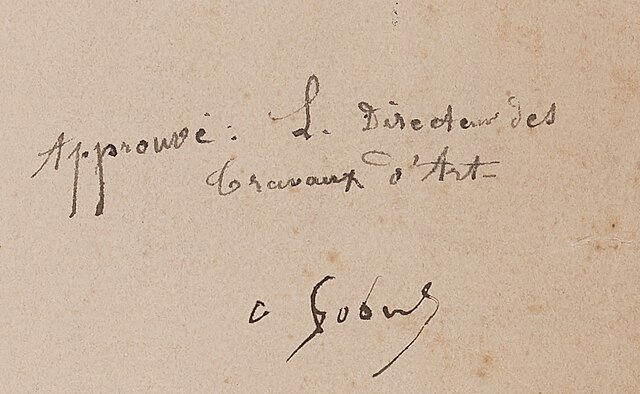 Approuvé: L. Directeur des
travaux d'Art